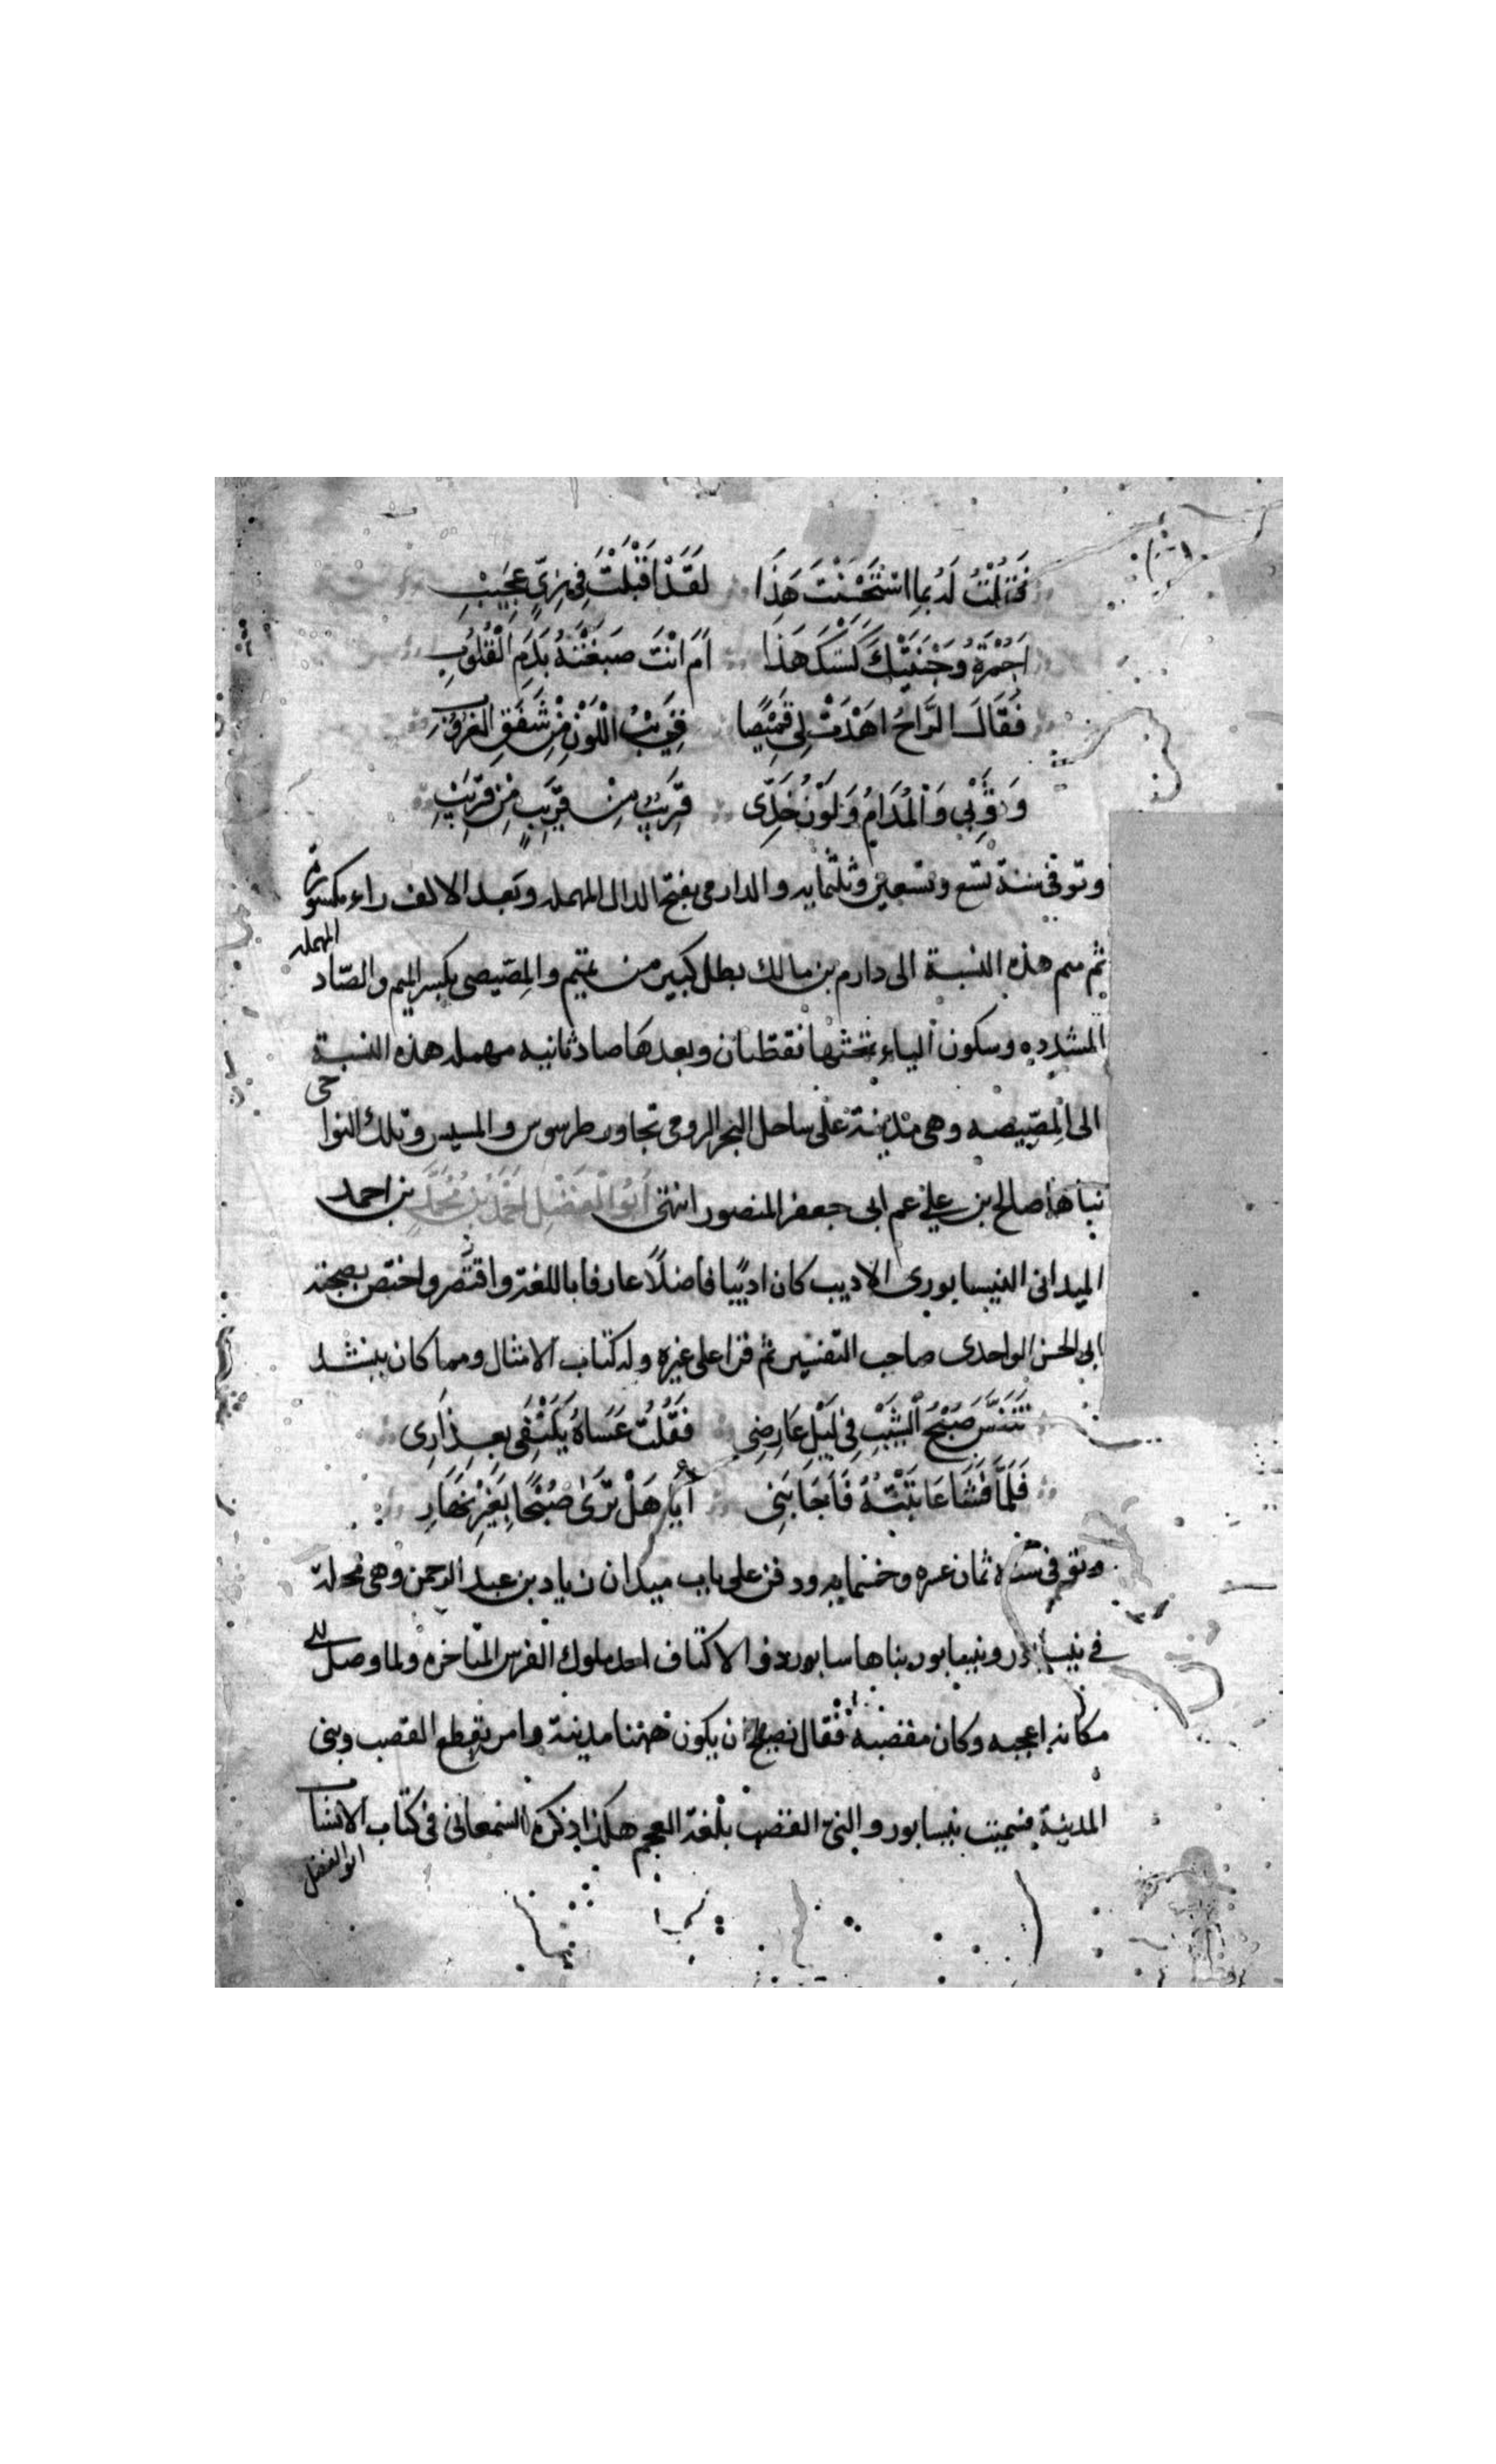 فَقُلْتُ لَهُ بِمَا اسْتَحْسَنْتَ هَذَا لَقَدْ اَقْبَلْتَ فِي زِيٍّ عَجِيبِ
اَحُمْرَةُ وَجْنَتَيْكَ كَسَتْكَ هَذَا اَمْ اَنْتَ صَبَغْتَهُ بِدَمِ الْقُلُوبِ
فَقَالَ الرَّاحُ اَهْدَتْ لِي قَمِيْصًا قَرِيْبُ اللَّوْنِ مِنْ شَفَقِ الغروب
وَثَوْبِي وَالْمُدَامُ وَلَوْنُ خَدِّى قَرِيبٌ مِنْ قَرِيبٍ مِنْ قَرِيْبِ
وتوفى سنة تسع وتسعين وثلثمايه والدارمى بفتح الدال المهمله وبعد الالف راء مكسورة
ثم ميم هذه النسبة الى دارم بن مالك بطل كبير من تميم والمِصّيصى بكسر الميم والصّاد المهمله
المشدده وسكون الياء تحتها نقطتان وبعدها صاد ثانيه مهمله هذه النسبة
الى المِصّيصه وهى مدينة على ساحل البحر الرومى تجاور طرسوس والسيس وتلك النواحى
بناها صالح بن على عم ابى جعفر المنصور انتهى اَبُو الْفَضْلِ اَحْمَدُ بْنُ مُحَمَّدِ بن احمد
الميدانى النيسابورى الاديب كان اديبًا فاضلاً عارفا باللغة واختص بصحبة
ابى الحسن الواحدى صاحب التفسير ثم قرا على غيره وله كتاب الامثال ومما كان ينشد
تَنَفَّسَ صُبْحُ الشَّيْبِ فِي لَيْلِ عَارِضِى فَقُلْتُ عَسَاهُ يَكْتَفِى بِعِذَارِى
فَلَمَّا فَشَا عَاتَبْتُهُ فَاَجَابَنِى اَيَا هَلْ تَرَى صُبْحًا بِغَيْرِ نَهَارِ
وتوفى سنة ثمان عشره وخمسمايه ودفن على باب ميدان زياد بن عبد الرحمن وهى محلة
فى نيسابور ونيسابور بناها سابور ذو الاكتاف احد ملوك الفرس المتاخره ولما وصل الى
مكانها اعجبه وكان مقصبة فقال يصلح ان يكون ههنا مدينة وامر بقطع القصب وبنى
المدينة فسميت نيسابور والنى القصب بلغة العجم هكذا ذكره السمعانى فى كتاب الانساب
ابو الفضل